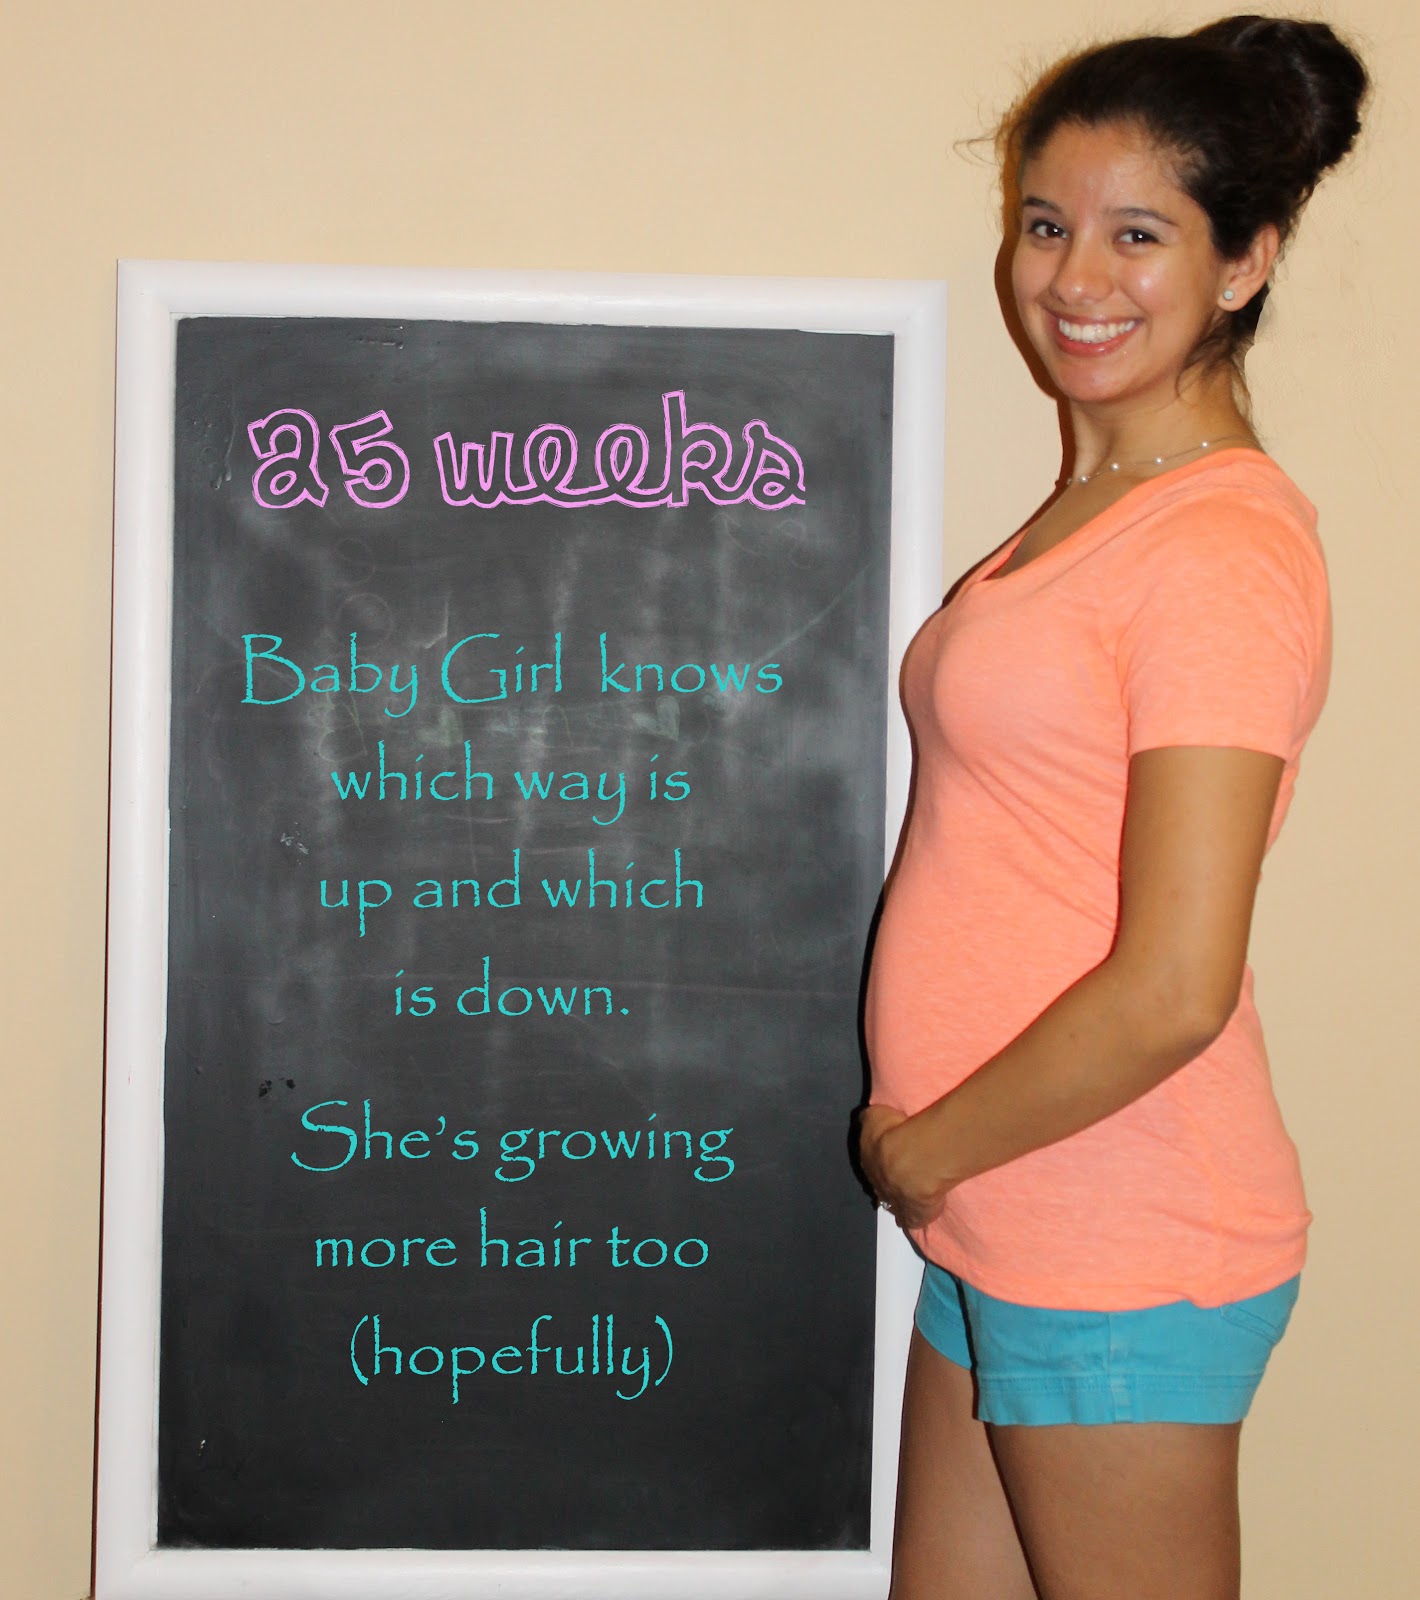 25 weeks
Baby Girl knows
which way is
up and which
is down.
She's growing
more hair too
(hopefully)